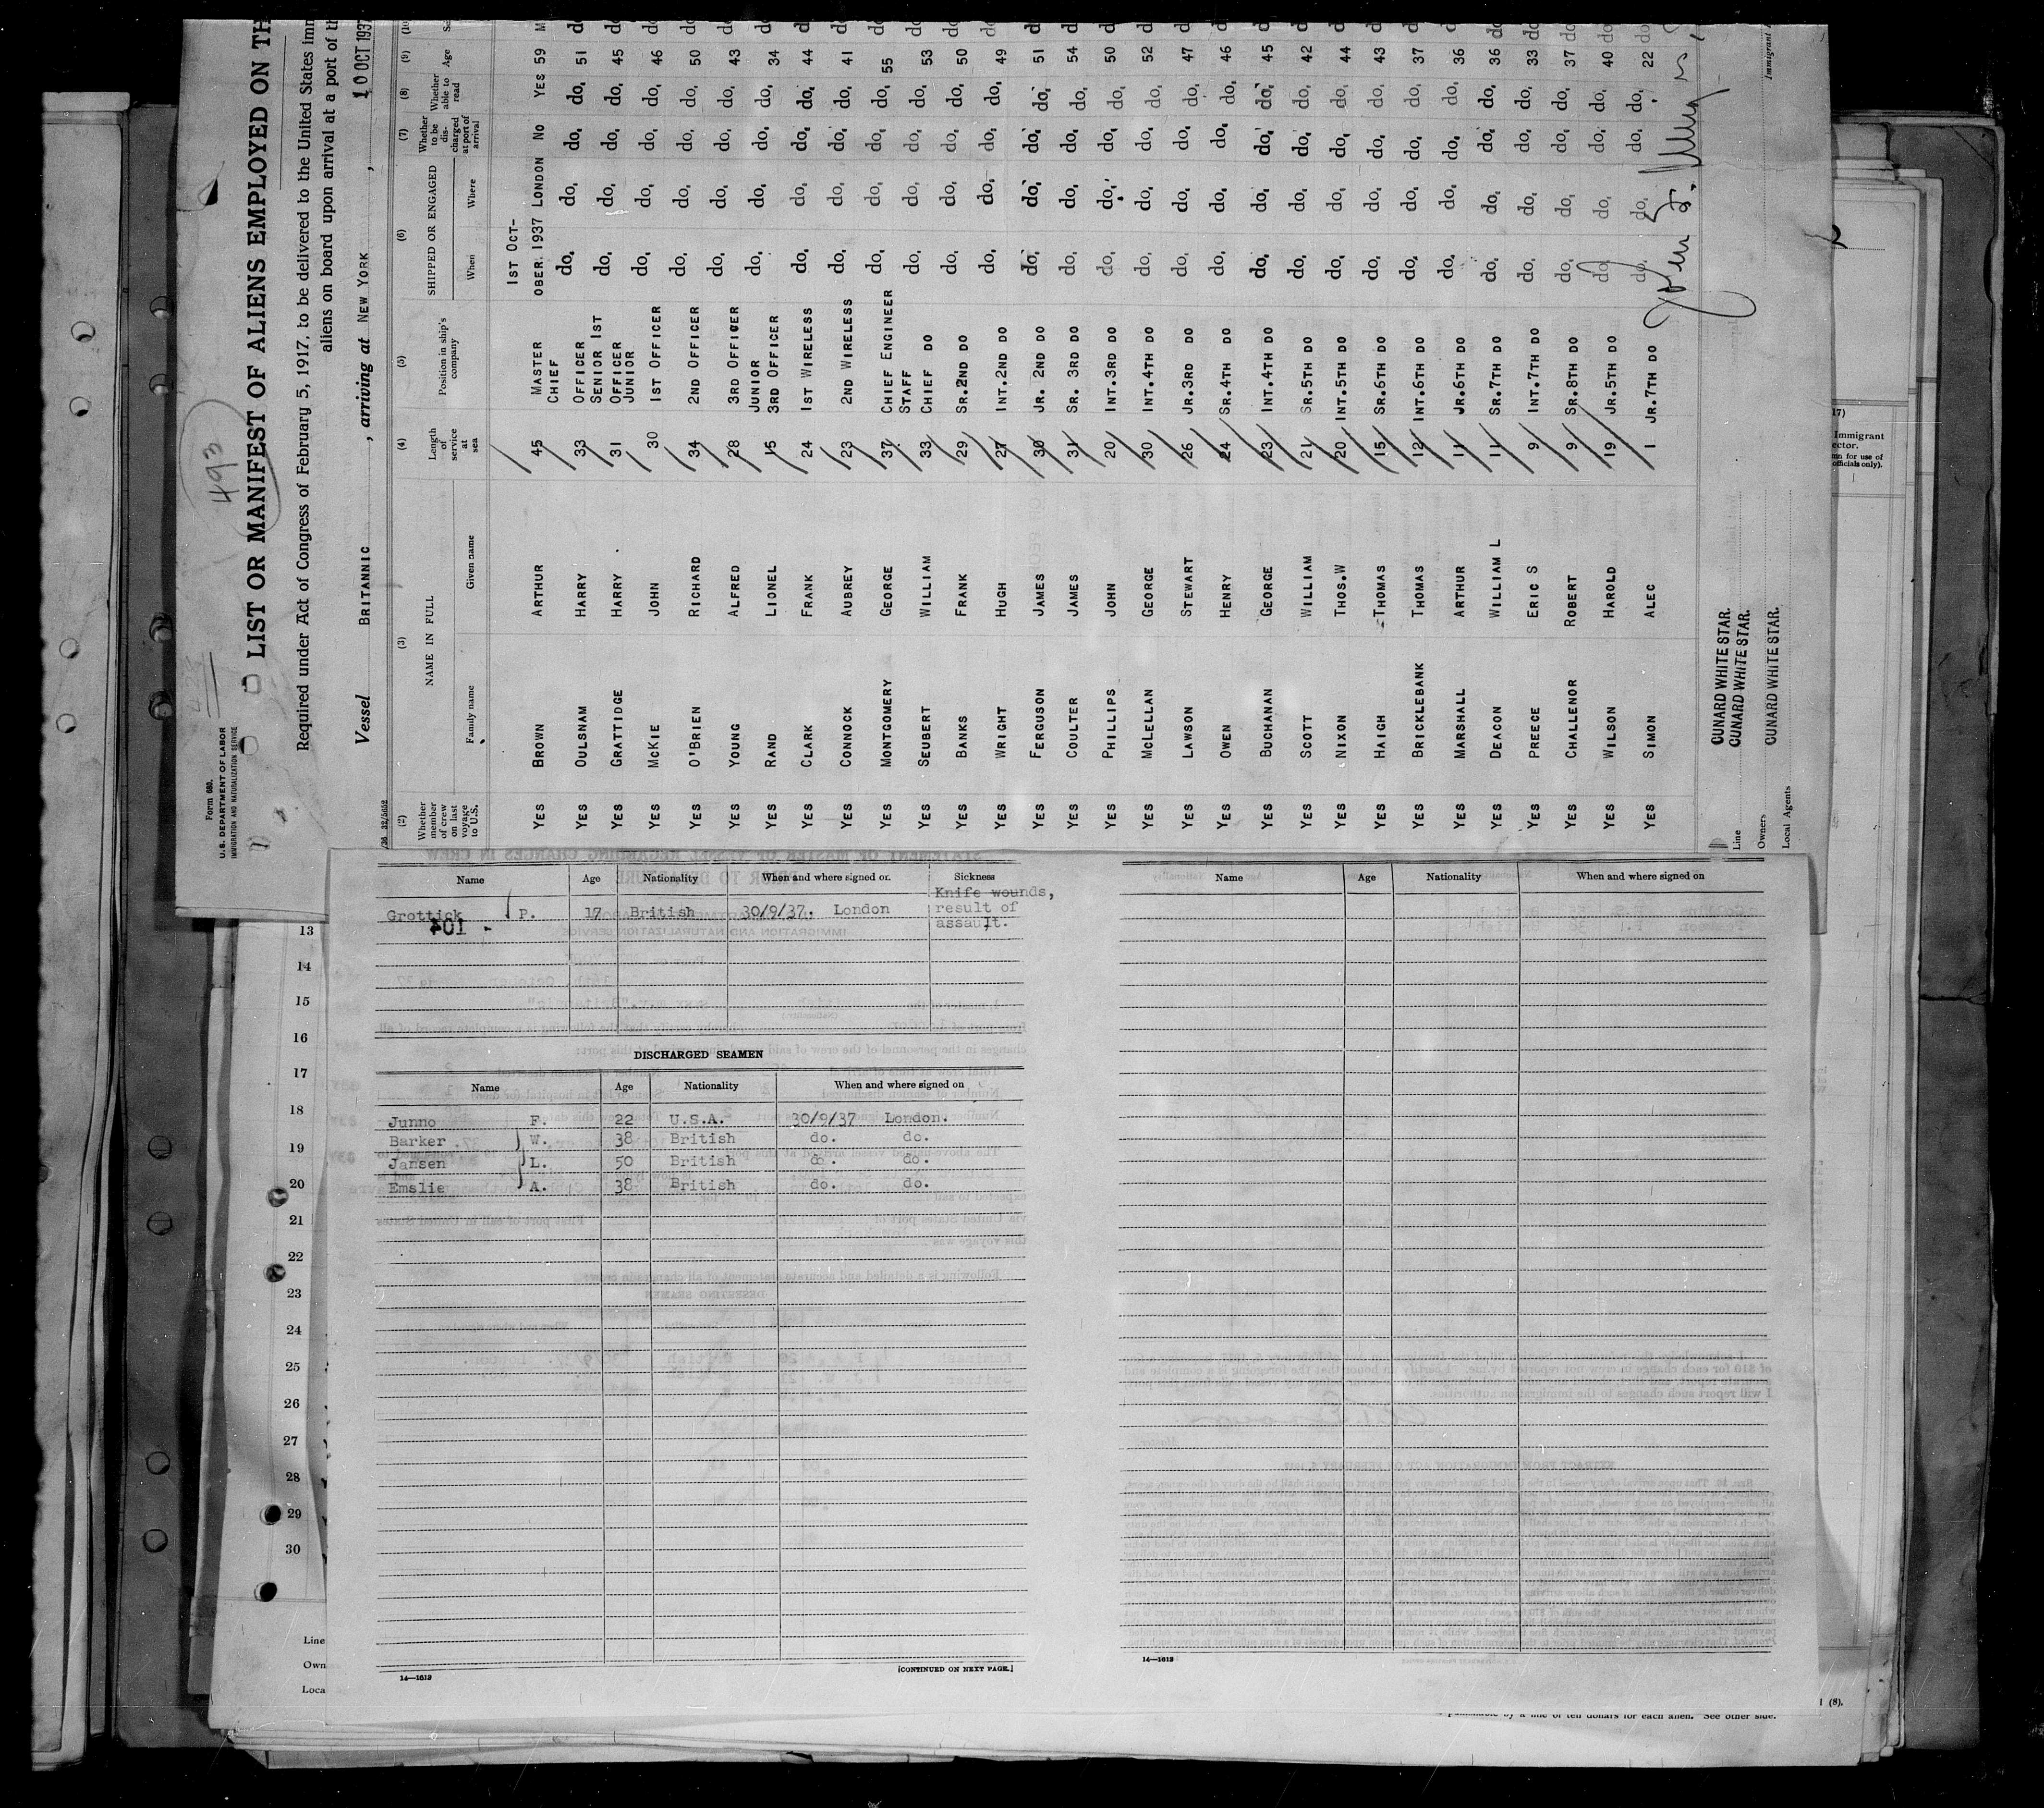 Form 680.
U.S. DEPARTMENT OF LABOR
IMMIGRATION AND NATURALIZATION SERVICE
493
LIST OR MANIFEST OF ALIENS EMPLOYED ON TH
Required under Act of Congress of February 5, 1917, to be delivered to the United States imm
aliens on board upon arrival at a port of th
Vessel BRITANNIC , arriving at NEW YORK , 10 OCT 1937
(2) (3) (4) (5) (6) (7) (8) (9) (10)
Whether member of crew on last voyage to U.S. NAME IN FULL Family name Given name Length of service at sea Position in ship's company SHIPPED OR ENGAGED When Where Whether to be discharged at port of arrival Whether able to read Age
YES BROWN ARTHUR 45 MASTER 1ST OCTOBER.1937 LONDON No YES 59 M
YES OULSNAM HARRY 33 CHIEF OFFICER do. do. do. do. 51 do
YES GRATTIDGE HARRY 31 SENIOR 1ST OFFICER do. do. do. do. 45 do
YES McKIE JOHN 30 JUNIOR 1ST OFFICER do. do. do. do. 46 do
YES O'BRIEN RICHARD 34 2ND OFFICER do. do. do. do. 50 do
YES YOUNG ALFRED 28 3RD OFFICER do. do. do. do. 43 do
YES RAND LIONEL 15 JUNIOR 3RD OFFICER do. do. do. do. 34 do
YES CLARK FRANK 24 1ST WIRELESS do. do. do. do. 44 do
YES CONNOCK AUBREY 23 2ND WIRELESS do. do. do. do. 41 do
YES MONTGOMERY GEORGE 37 CHIEF ENGINEER do. do. do. do. 55 do
YES SEUBERT WILLIAM 33 STAFF CHIEF DO do. do. do. do. 53 do
YES BANKS FRANK 29 SR.2ND DO do. do. do. do. 50 do
YES WRIGHT HUGH 27 INT.2ND DO do. do. do. do. 49 do
YES FERGUSON JAMES 30 JR. 2ND DO do. do. do. do. 51 do
YES COULTER JAMES 31 SR. 3RD DO do. do. do. do. 54 do
YES PHILLIPS JOHN 20 INT.3RD DO do. do. do. do. 50 do
YES McLELLAN GEORGE 30 INT.4TH DO do. do. do. do. 52 do
YES LAWSON STEWART 26 JR.3RD DO do. do. do. do. 47 do
YES OWEN HENRY 24 SR.4TH DO do. do. do. do. 46 do
YES BUCHANAN GEORGE 23 INT.4TH DO do. do. do. do. 45 do
YES SCOTT WILLIAM 21 SR.5TH DO do. do. do. do. 42 do
YES NIXON THOS.W 20 INT.5TH DO do. do. do. do. 44 do
YES HAIGH THOMAS 15 SR.6TH DO do. do. do. do. 43 do
YES BRICKLEBANK THOMAS 12 INT.6TH DO do. do. do. do. 37 do
YES MARSHALL ARTHUR 11 JR.6TH DO do. do. do. do. 36 do
YES DEACON WILLIAM L 11 SR.7TH DO do. do. do. do. 36 do
YES PREECE ERIC S 9 INT.7TH DO do. do. do. do. 33 do
YES CHALLENOR ROBERT 9 SR.8TH DO do. do. do. do. 37 do
YES WILSON HAROLD 19 JR.5TH DO do. do. do. do. 40 do
YES SIMON ALEC 1 JR.7TH DO do. do. do. do. 22 do
Line CUNARD WHITE STAR.
Owners CUNARD WHITE STAR.
Local Agents CUNARD WHITE STAR.
Immigrant
Name Age Nationality When and where signed on Sickness
Grottick P. 17 British 30/9/37. London Knife wounds, result of assault.
104 -
DISCHARGED SEAMEN
Name Age Nationality When and where signed on
Junno F. 22 U.S.A. 30/9/37 London.
Barker W. 38 British do. do.
Jansen L. 50 British do. do.
Emslie A. 38 British do. do.
14—1612
[CONTINUED ON NEXT PAGE.]
Name Age Nationality When and where signed on
14—1612
13
14
15
16
17
18
19
20
21
22
23
24
25
26
27
28
29
30
Line
Own
Loca
17)
Immigrant
ector.
mn for use of
officials only).
l (8).
by a fine of ten dollars for each alien. See other side.